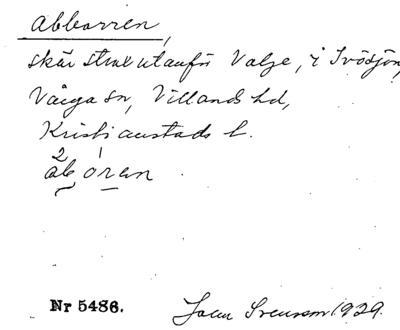 Abborren,
skär strax utanför Valje, i Ivösjön,
Vånga sn, Villands hd,
Kristianstads l.
2 1
åbọren
Nr 5486. John Svensson 1929.